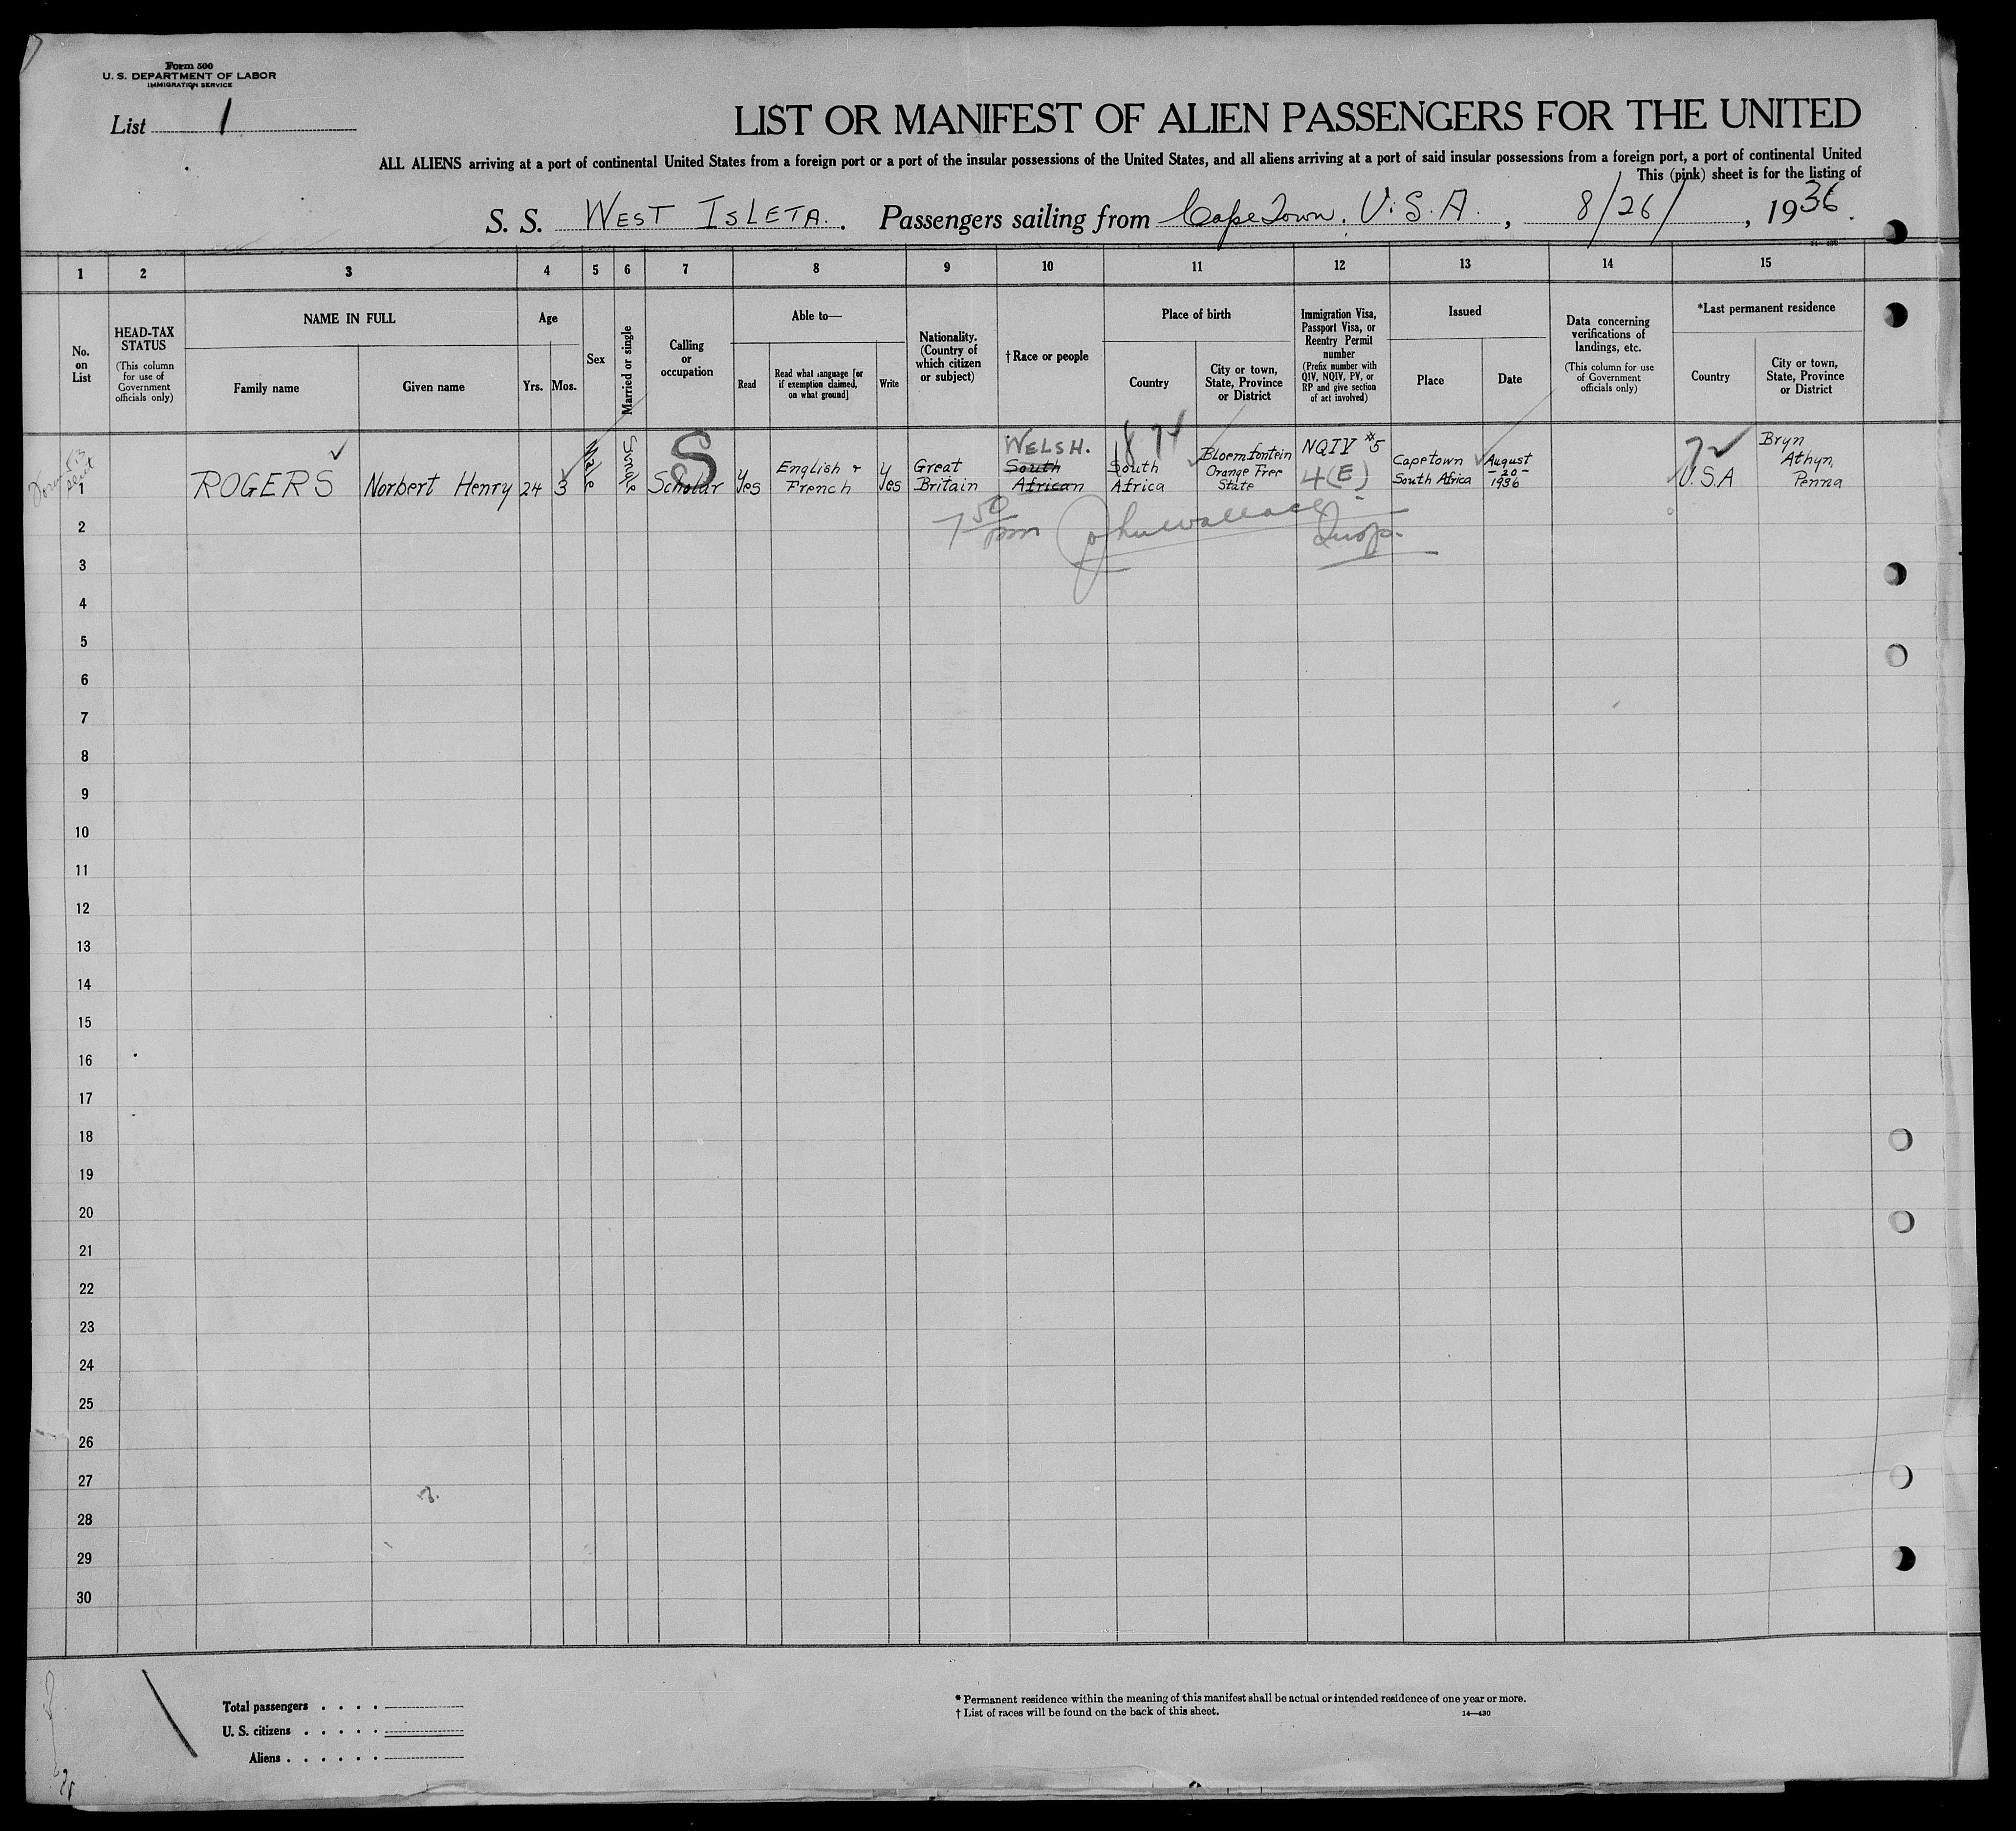 Form 500
U. S. DEPARTMENT OF LABOR
IMMIGRATION SERVICE
List 1
LIST OR MANIFEST OF ALIEN PASSENGERS FOR THE UNITED
ALL ALIENS arriving at a port of continental United States from a foreign port or a port of the insular possessions of the United States, and all aliens arriving at a port of said insular possessions from a foreign port, a port of continental United
This (pink) sheet is for the listing of
S. S. WEST ISLETA. Passengers sailing from Cape Town, U.S.A., 8/26/, 1936.
1 2 3 4 5 6 7 8 9 10 11 12 13 14 15
No. on List
HEAD-TAX STATUS
(This column for use of Government officials only)
NAME IN FULL
Family name
Given name
Age
Yrs. Mos.
Sex
Married or single
Calling or occupation
Able to—
Read
Read what language [or if exemption claimed, on what ground]
Write
Nationality. (Country of which citizen or subject)
†Race or people
Place of birth
Country
City or town, State, Province or District
Immigration Visa, Passport Visa, or Reentry Permit number
(Prefix number with QIV, NQIV, PV, or RP and give section of act involved)
Issued
Place
Date
Data concerning verifications of landings, etc.
(This column for use of Government officials only)
*Last permanent residence
Country
City or town, State, Province or District
1 ROGERS Norbert Henry 24 3 Male Single S Scholar Yes English + French Yes Great Britain WELSH. South African South Africa Bloemfontein Orange Free State NQIV #5 4(E) Capetown South Africa August -20- 1936 72 U.S.A Bryn Athyn, Penna
7 50 pm John Wallace Insp.
2
3
4
5
6
7
8
9
10
11
12
13
14
15
16
17
18
19
20
21
22
23
24
25
26
27
28
29
30
Total passengers . . . .
U. S. citizens . . . . .
Aliens . . . . . .
* Permanent residence within the meaning of this manifest shall be actual or intended residence of one year or more.
† List of races will be found on the back of this sheet.
14—430